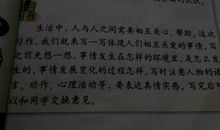 生活中，人与人之间需要相互关心，帮助，这次
习作，我们就来写一写体现人们相互关爱的事情，写
之前先想一想，事情发生在怎样的环境里，是怎么发
生的，事情发展变化的过程怎样，写时注意人物的语
言、动作、心理活动等，要表达真情实感，写完后可
以和同学交换意见。